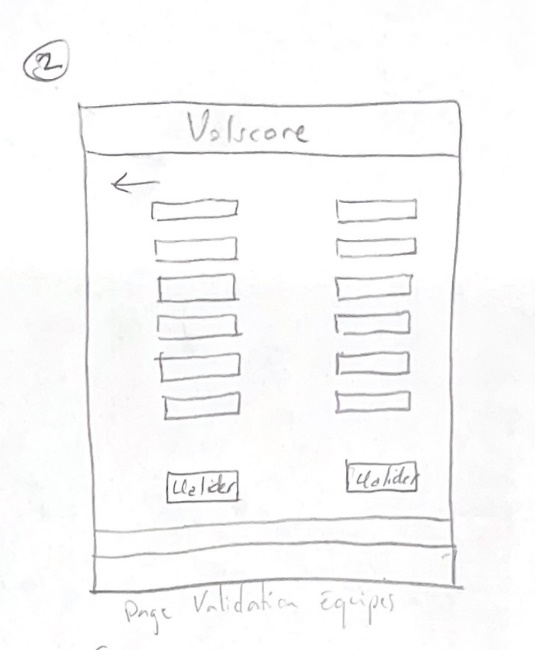 2
Volscore
←
Valider Valider
Page Validation Equipes